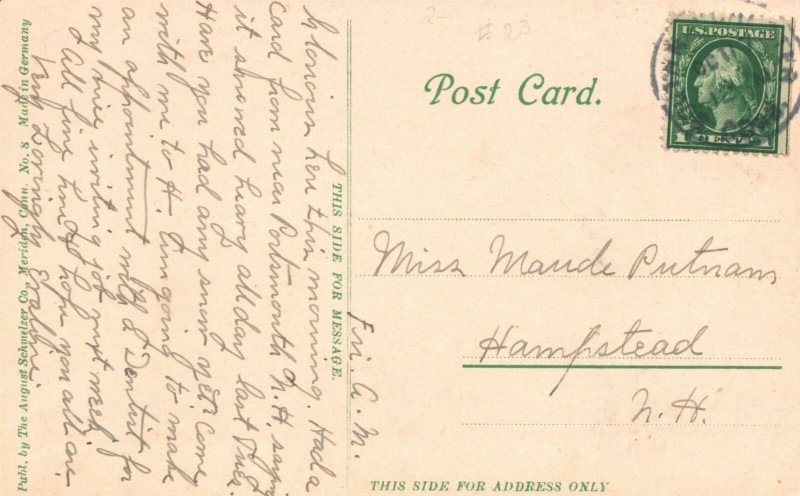 2-
# 23
Post Card.
U.S. POSTAGE
1 CENT 1
THIS SIDE FOR MESSAGE.
Fri. A.M.
Glorious here this morning. Had a
card from near Portsmouth N.H. saying
it snowed heavy all day last Tues.
Have you had any snow yet? Come
with me to H. I'm going to make
an appointment with a Dentist for
my time writing for next week.
All fine hope you all are
Very Lovingly Evalyn.
Miss Maude Putnam
Hampstead
N.H.
THIS SIDE FOR ADDRESS ONLY
Publ. by The August Schmelzer Co., Meriden, Conn. No. 8 Made in Germany